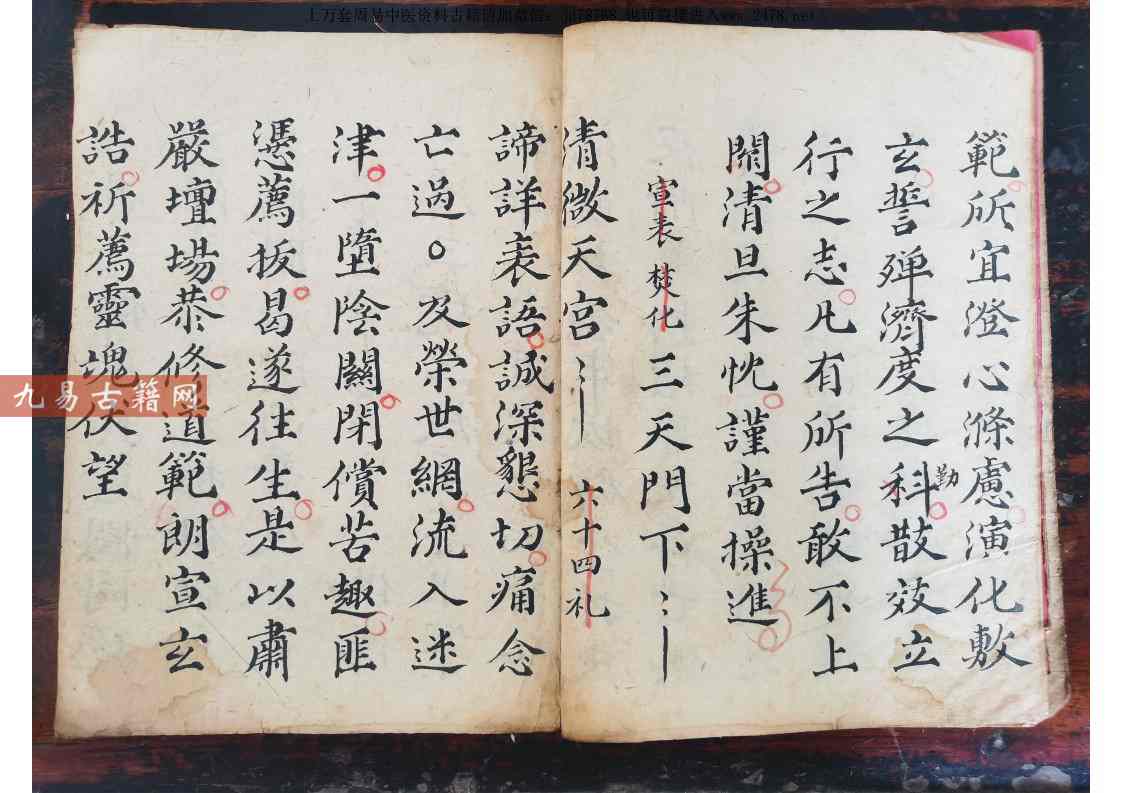 上万套周易中医资料古籍请加微信:
範所宜澄心滌慮演化敷
玄誓殫濟度之科勤散效立
行之志凡有所告敢不上
聞清旦朱忱謹當操進
宣表 焚化 三天門下
清微天宮 六十四礼
諦詳衷語誠深懇切痛念
亡過○及榮世網流入迷
津一墮陰關閉償苦趣匪
憑薦拔曷遂往生是以肅
嚴壇場恭修道範朗宣玄
誥祈薦靈魂伏望
九易古籍网